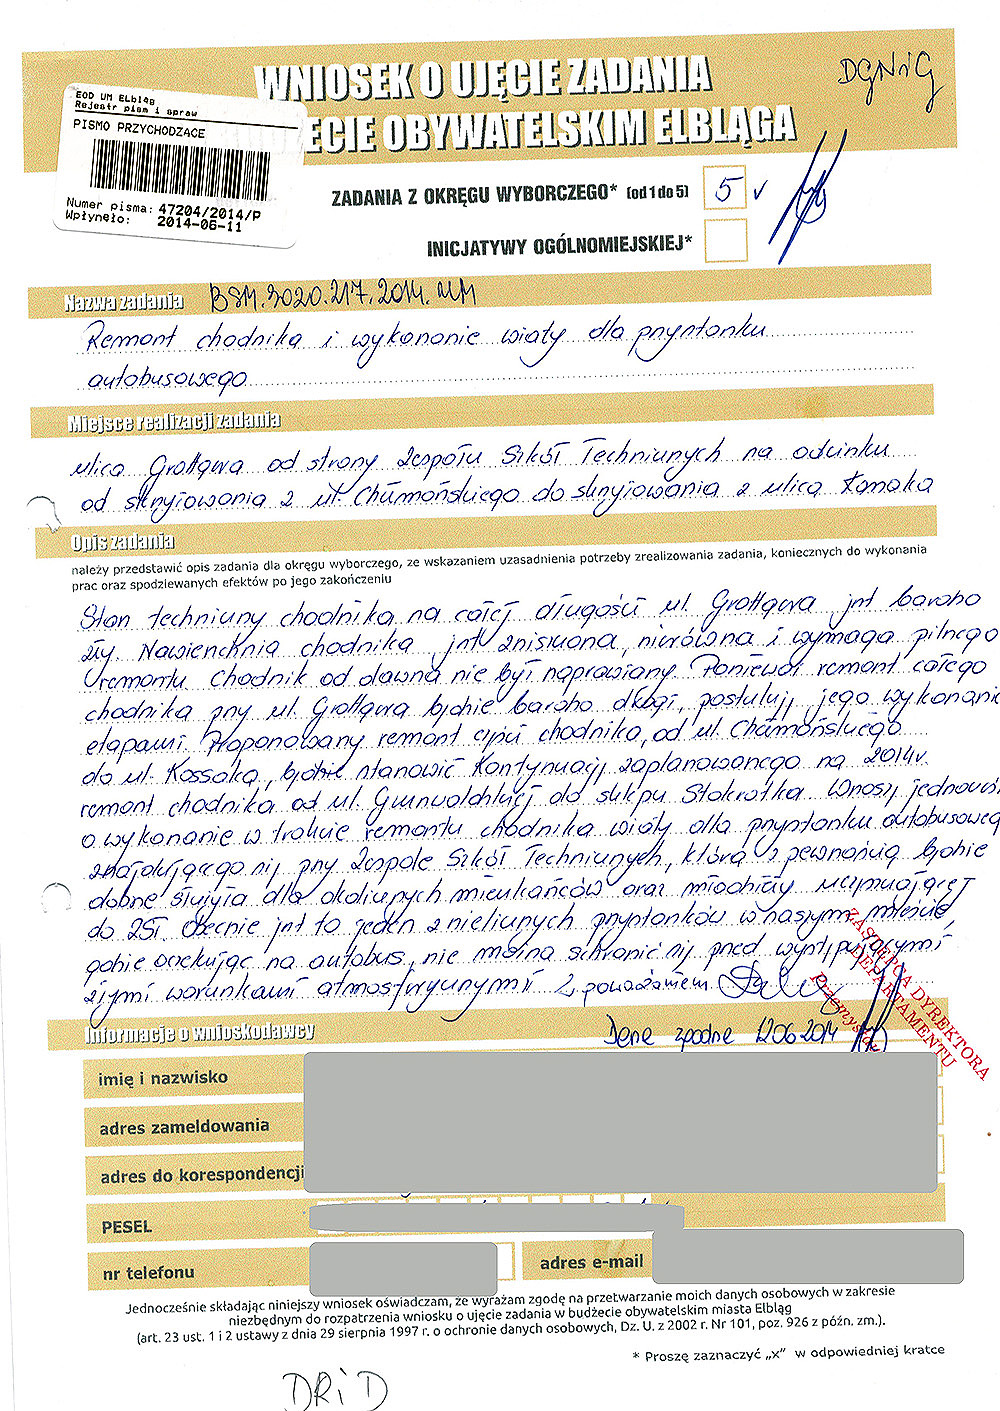 WNIOSEK O UJĘCIE ZADANIA
ECIE OBYWATELSKIM ELBLĄGA
DGNiG
EOD UM ELbląg
Rejestr pism i spraw
PISMO PRZYCHODZĄCE
Numer pisma: 47204/2014/P
Wpłynęło: 2014-06-11
ZADANIA Z OKRĘGU WYBORCZEGO* (od 1 do 5) 5 v
INICJATYWY OGÓLNOMIEJSKIEJ*
Nazwa zadania BSM.3020.217.2014.MM
Remont chodnika i wykonanie wiaty dla przystanku
autobusowego
Miejsce realizacji zadania
ulica Grottgera od strony Zespołu Szkół Technicznych na odcinku
od skrzyżowania z ul. Chełmońskiego do skrzyżowania z ulicą
Opis zadania
należy przedstawić opis zadania dla okręgu wyborczego, ze wskazaniem uzasadnienia potrzeby zrealizowania zadania, koniecznych do wykonania
prac oraz spodziewanych efektów po jego zakończeniu
Stan techniczny chodnika na całej długości ul. Grottgera jest bardzo
zły. Nawierzchnia chodnika jest zniszczona, nierówna i wymaga pilnego
remontu. Chodnik od dawna nie był naprawiany. Ponieważ remont całego
chodnika przy ul. Grottgera będzie bardzo długi, postuluję jego wykonanie
etapami. Proponowany remont części chodnika, od ul. Chełmońskiego
do ul. Kossaka, będzie stanowić kontynuację zaplanowanego na 2014r.
remont chodnika od ul. Grunwaldzkiej do sklepu Stokrotka. Wnoszę jednocześn
o wykonanie w trakcie remontu chodnika wiaty dla przystanku autobusoweg
znajdującego się przy Zespole Szkół Technicznych, która z pewnością będzie
dobrze służyła dla okolicznych mieszkańców oraz młodzieży uczęszczającej
do ZST. Obecnie jest to jeden z nielicznych przystanków w naszym mieście,
gdzie oczekując na autobus, nie można schronić się przed występującymi
złymi warunkami atmosferycznymi. Z poważaniem
ZASTĘPCA DYREKTORA
DEPARTAMENTU
Przemysław
Informacje o wnioskodawcy
Dane zgodne 12.06.2014
imię i nazwisko
adres zameldowania
adres do korespondencji
PESEL
nr telefonu
adres e-mail
Jednocześnie składając niniejszy wniosek oświadczam, że wyrażam zgodę na przetwarzanie moich danych osobowych w zakresie
niezbędnym do rozpatrzenia wniosku o ujęcie zadania w budżecie obywatelskim miasta Elbląg
(art. 23 ust. 1 i 2 ustawy z dnia 29 sierpnia 1997 r. o ochronie danych osobowych, Dz. U. z 2002 r. Nr 101, poz. 926 z późn. zm.).
* Proszę zaznaczyć „x” w odpowiedniej kratce
DRiD